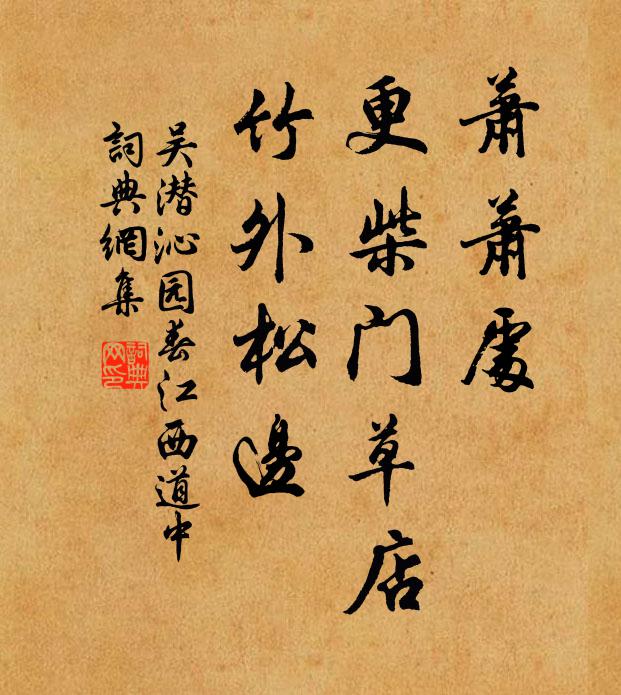 蕭蕭處
更柴门草店
竹外松邊
吴潜沁园春江西道中
詞典網集
詞典網印